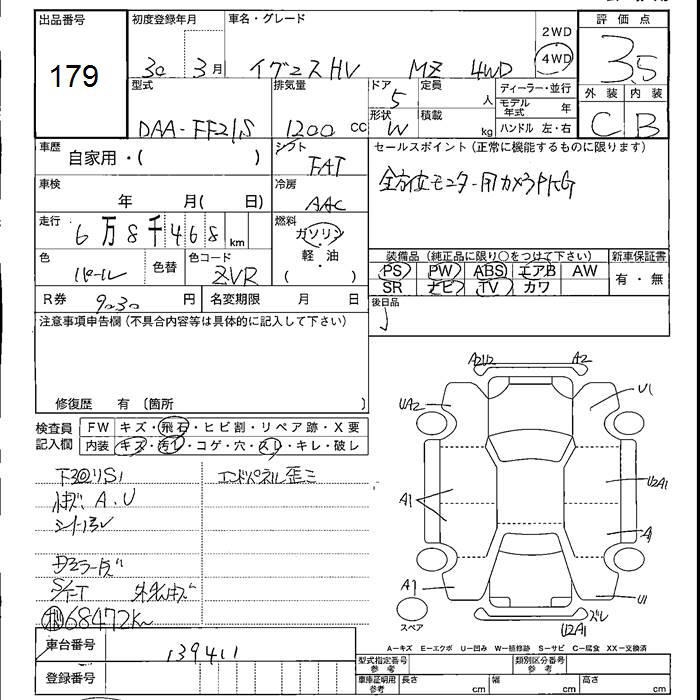 出品番号 初度登録年月 車名・グレード 評価点
179
30 3月 イグニスHV MZ 4WD 2WD 4WD 3.5
型式 排気量 ドア 定員 ディーラー・並行 外装 内装
DAA-FF21S 1200 cc 5 人 モデル年式 年 C B
形状 積載 ハンドル 左・右
W kg
車歴 シフト セールスポイント(正常に機能するものに限ります)
自家用・( ) FAT
全方位モニター用カメラPKG
車検 冷房
年 月( 日) AAC
走行 燃料
6万8千468 km ガソリン・軽・油 ( )
装備品(純正品に限り○をつけて下さい) 新車保証書
PS PW ABS エアB AW 有・無
SR ナビ TV カワ
色 色替 色コード
パール ZVR
後日品
R券 9030 円 名変期限 月 日
注意事項申告欄(不具合内容等は具体的に記入して下さい)
修復歴 有〔箇所 〕
検査員記入欄 FW キズ・飛石・ヒビ割・リペア跡・X要
内装 キズ・汚レ・コゲ・穴・スレ・キレ・破レ
エンドパネル歪ミ
A.U
68472km
A2U2 A2
UA2 U1
A1 U2A1
A
A1 U1
スペア U2A1 ズレ
車台番号 139411
A−キズ E−エクボ U−凹み W−補修跡 S−サビ C−腐食 XX−交換済
登録番号
型式指定番号 参考 類別区分番号 参考
車庫証明用 参考 長さ cm 幅 cm 高さ cm